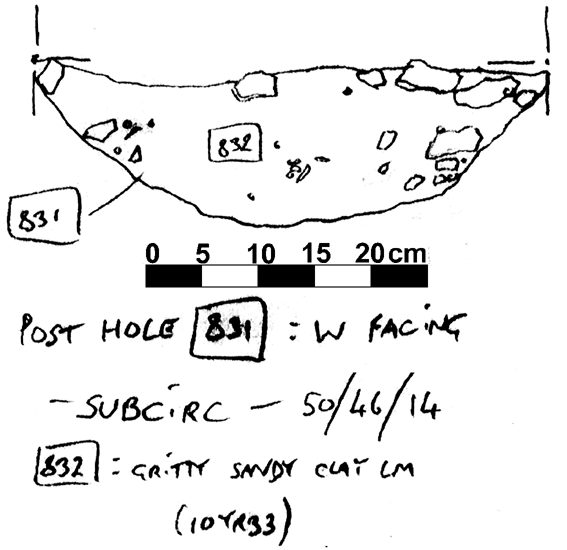 832
831
0 5 10 15 20 cm
POST HOLE 831 : W FACING
- SUBCIRC - 50/46/14
832 : GRITTY SANDY CLAY LM
(10YR33)